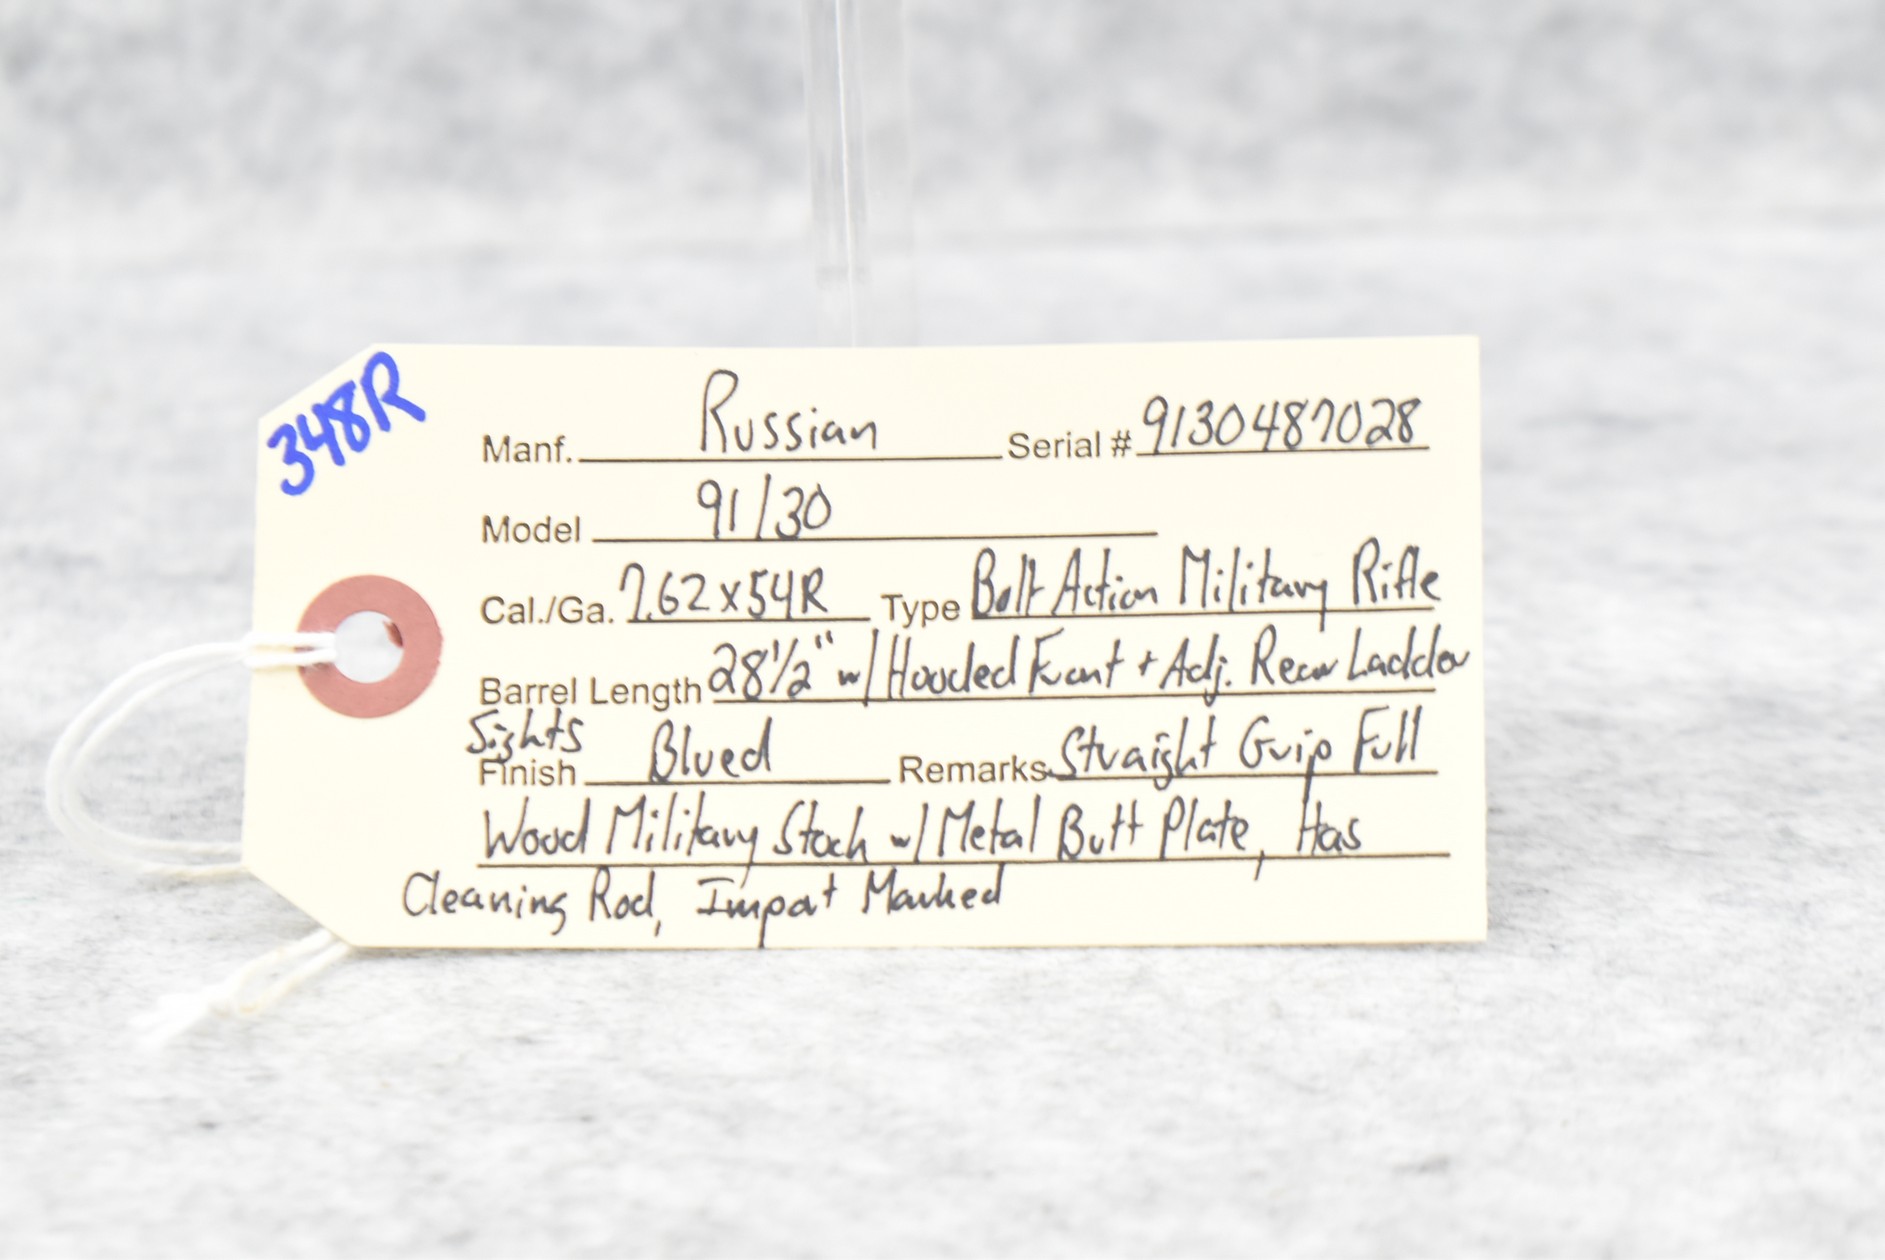 348R
Manf. Russian Serial # 9130487028
Model 91/30
Cal./Ga. 7.62x54R Type Bolt Action Military Rifle
Barrel Length 28 1/2" w/ Hooded Front + Adj. Rear Ladder
Sights
Finish Blued Remarks Straight Grip Full
Wood Military Stock w/ Metal Butt Plate, Has
Cleaning Rod, Import Marked